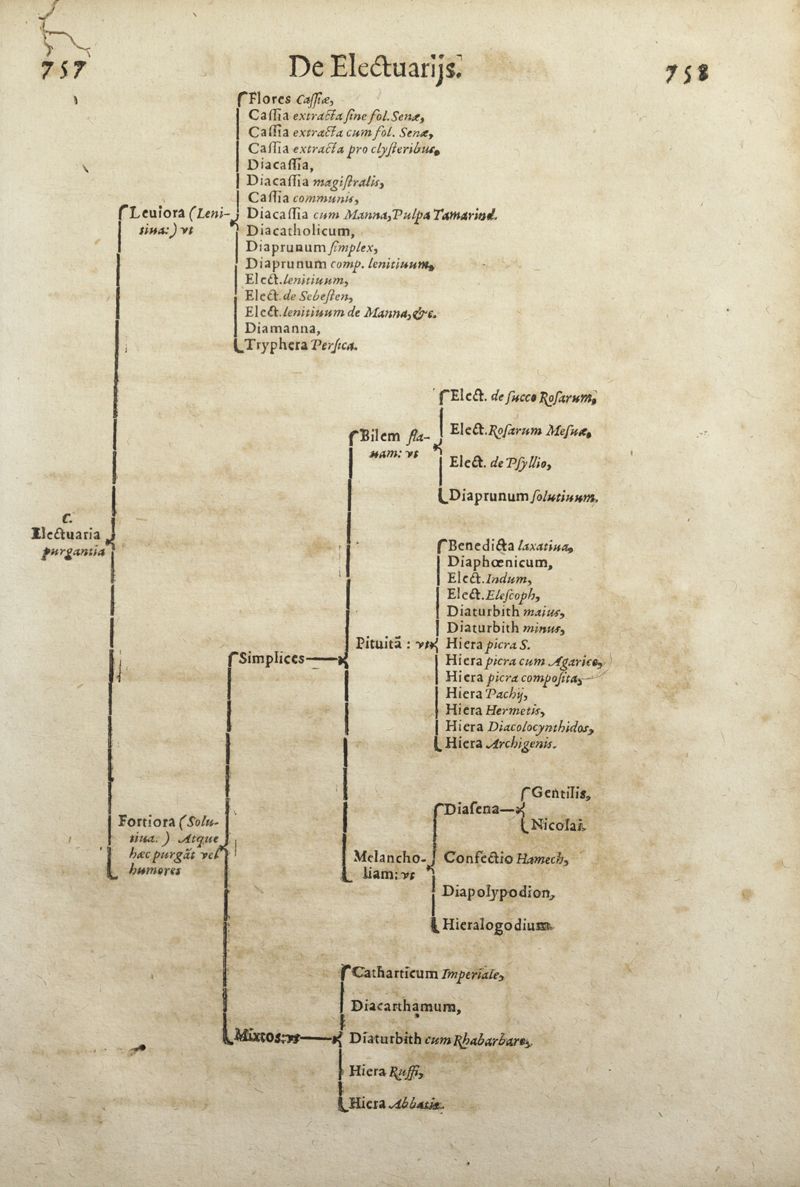 757
De Electuarijs.
758
Flores Caſſiæ,
Caſſia extracta ſine fol. Senæ,
Caſſia extracta cum fol. Senæ,
Caſſia extracta pro clyſteribus,
Diacaſſia,
Diacaſſia magiſtralis,
Caſſia communis,
Leuiora (Leni-
tiua:) vt
Diacaſſia cum Manna, Pulpa Tamarind.
Diacatholicum,
Diaprunum ſimplex,
Diaprunum comp. lenitiuum,
Elect. lenitiuum,
Elect. de Sebeſten,
Elect. lenitiuum de Manna, &c.
Diamanna,
Tryphera Perſica.
C.
Electuaria
purgantia
Fortiora (Solu-
tiua.) Atque
hæc purgāt vel
humores
Simplices
Bilem fla-
uam: vt
Elect. de ſucco Roſarum,
Elect. Roſarum Meſuæ,
Elect. de Pſyllio,
Diaprunum ſolutiuum.
Pituitā : vt
Benedicta laxatiua,
Diaphœnicum,
Elect. Indum,
Elect. Eleſcoph,
Diaturbith maius,
Diaturbith minus,
Hiera picra S.
Hiera picra cum Agarico,
Hiera picra compoſita,
Hiera Pachij,
Hiera Hermetis,
Hiera Diacolocynthidos,
Hiera Archigenis.
Melancho-
liam: vt
Diaſena
Gentilis,
Nicolai.
Confectio Hamech,
Diapolypodion,
Hieralogodium.
Mixtos: vt
Catharticum Imperiale,
Diacarthamum,
Diaturbith cum Rhabarbaro,
Hiera Ruffi,
Hiera Abbatis.